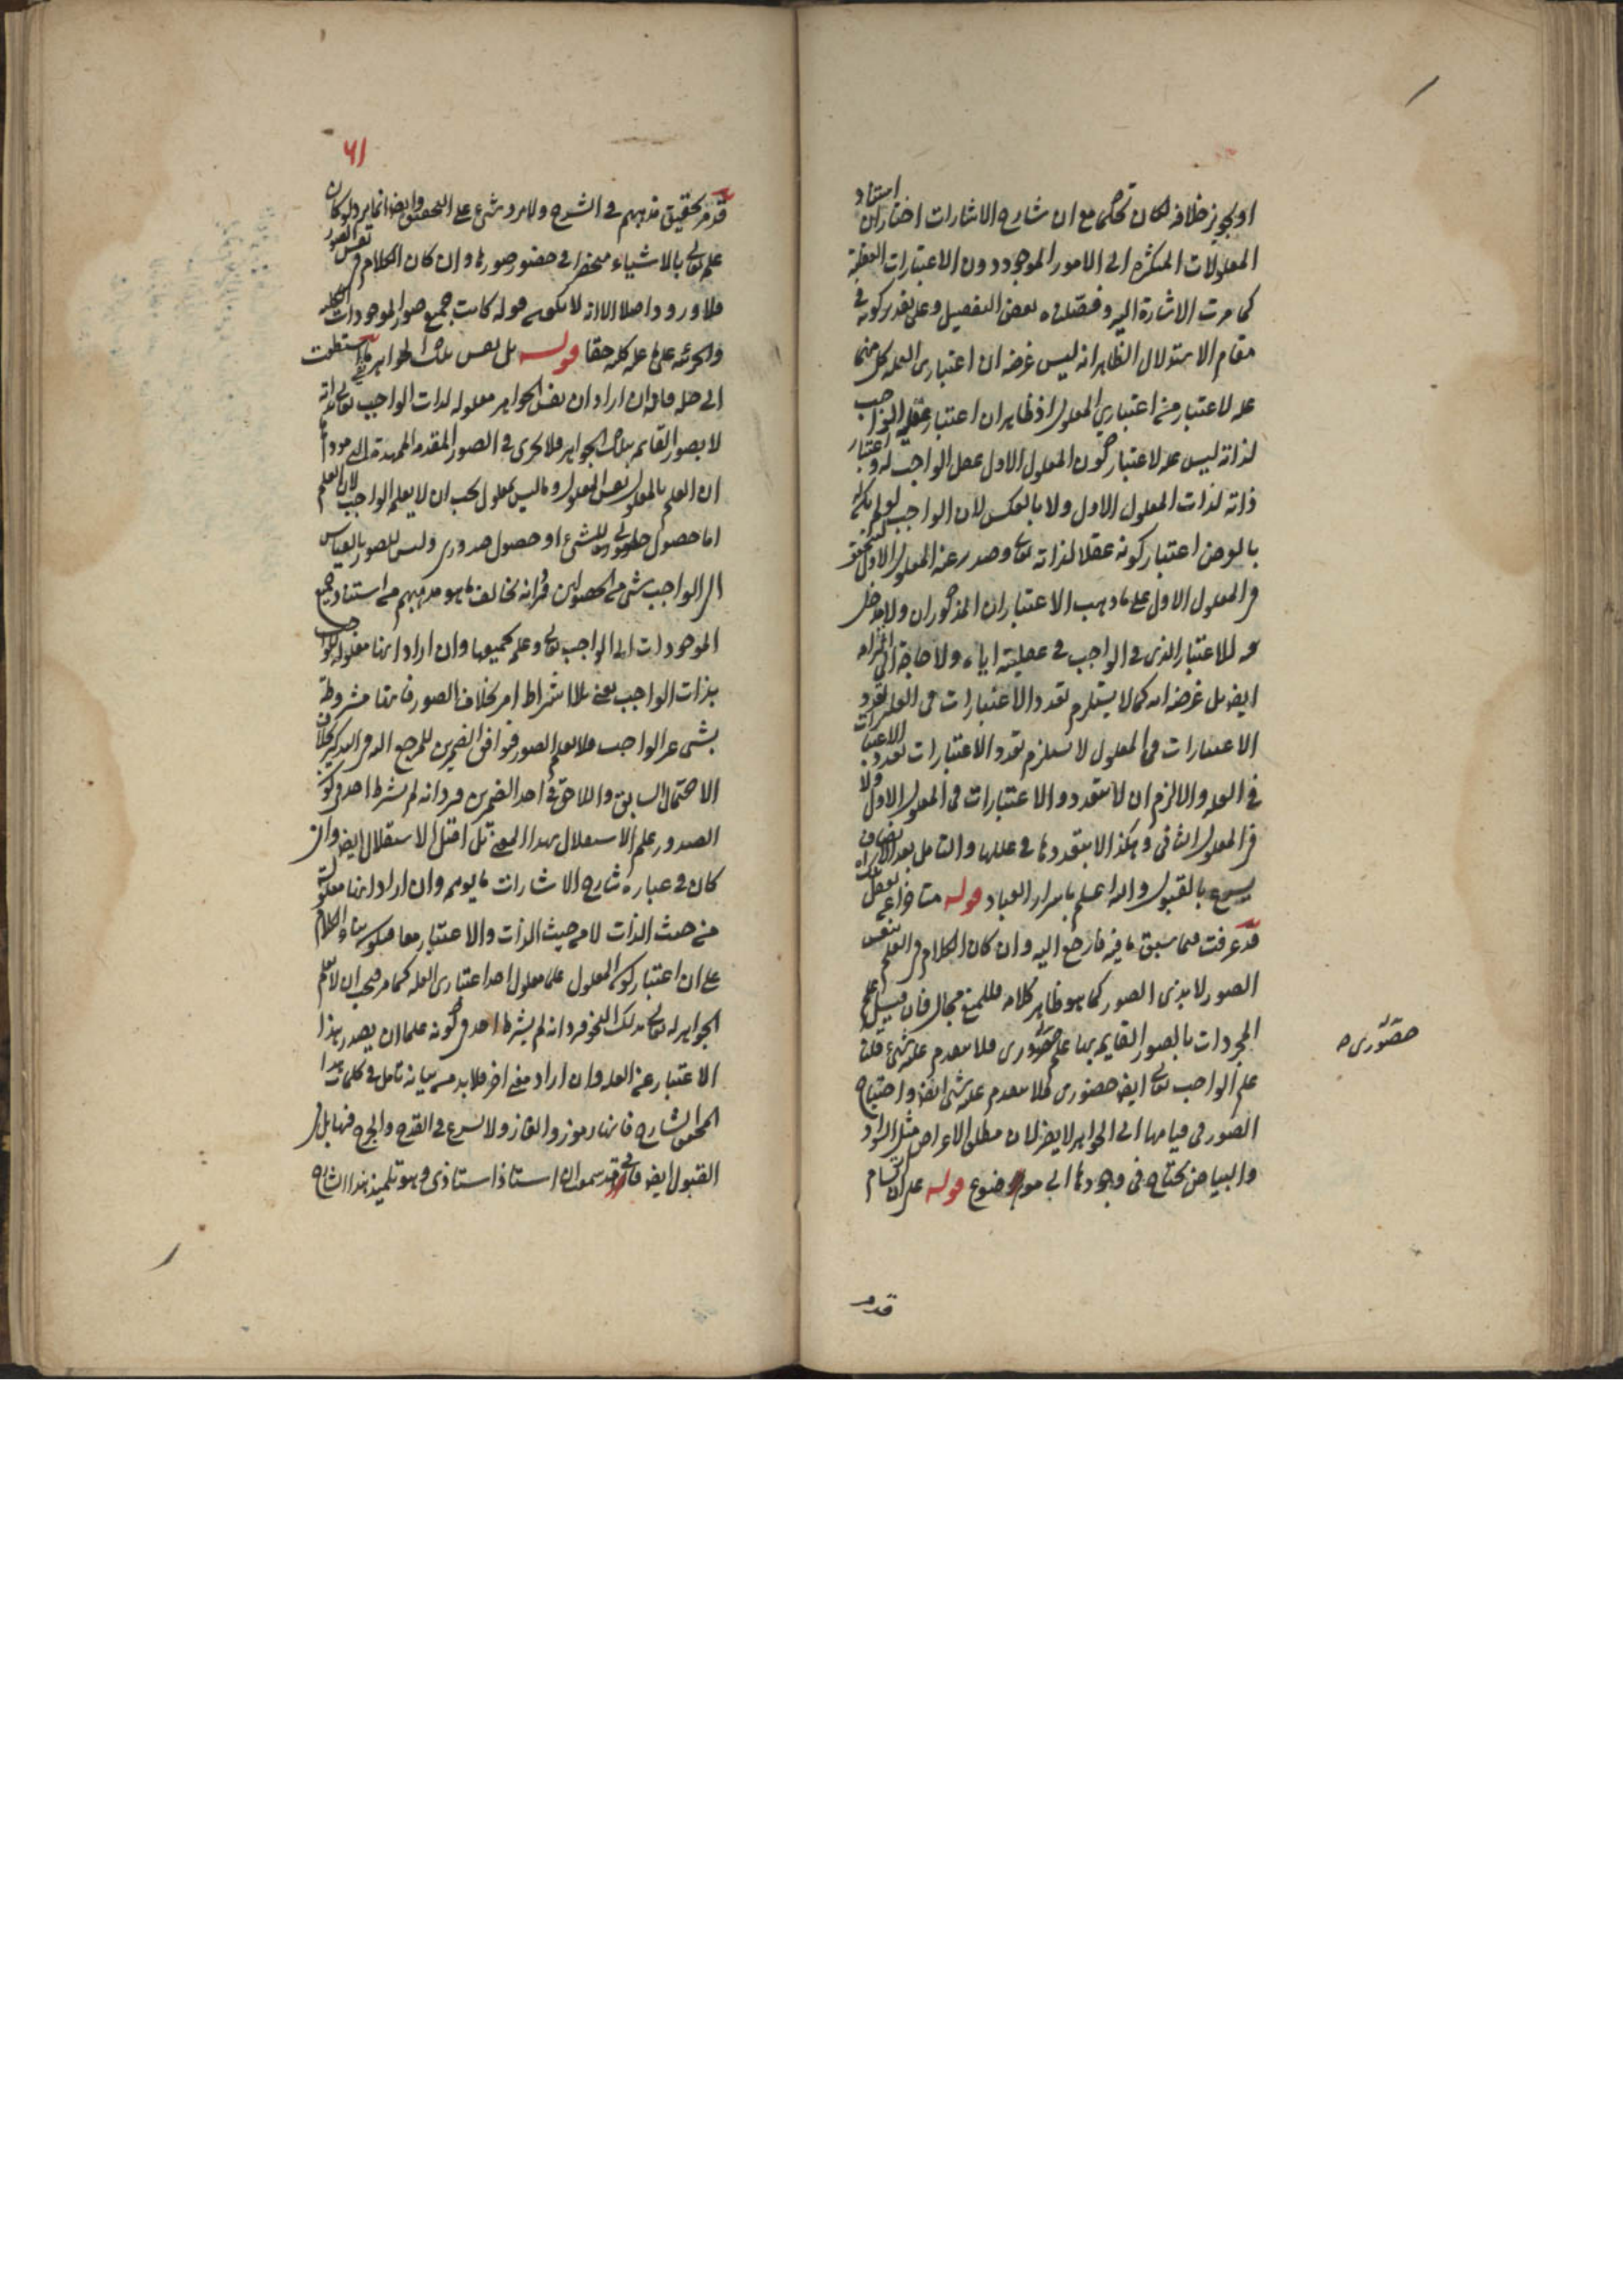 او بجويز خلافه لكان تحكما مع ان شارح الاشارات اختار ان استناد
المعلولات المتكثرة الى الامور الموجودة دون الاعتبارات العقلية
كما مرت الاشارة اليه وفصلناه بعض التفصيل وعلى تقدير كونه في
مقام الاستدلال الظاهر انه ليس غرضه ان اعتباري العلة كل منهما
علة لاعتبار من اعتباري المعلول اذ ظاهر ان اعتبار عقل الواجب
لذاته ليس علة لاعتبار كون المعلول الاول عقل الواجب له واعتبار
ذاته لذات المعلول الاول ولا بالعكس لان الواجب لو لم يكن
بالفرض اعتبار كونه عقلا لذاته تعالى وصدر عنه المعلول الاول لتحقق
في المعلول الاول على ما ذهب الاعتباران المذكوران ولا مدخل
للاعتبار الذي في الواجب في عقليته اياه ولا حاجة الى
ايضا بل غرضه انه كما لا يستلزم تعدد الاعتبارات في العلة تعدد
الاعتبارات في المعلول لا يستلزم تعدد الاعتبارات تعدد الاعتبارات
في العلة والا لزم ان لا تتعدد الاعتبارات في المعلول الاول ولا
في المعلول الثاني وهكذا لا يتعددها في عللها والتامل بعد الانصاف
بالقبول والله اعلم باسرار العباد قوله متاخرا عن تعقل
قد عرفت فيما سبق ما فيه فارجع اليه وان كان الكلام في العلم بنفس
الصور لا بذي الصور كما هو ظاهر كلامه فللمنع مجال فان قيل علم
المجردات بالصور القايمة بها علم حضوري فلا يتقدم عليه شيء قلنا
علم الواجب تعالى ايضا حضوري فلا يتقدم عليه شيء ايضا واحتياج
الصور في قيامها الى الجواهر لا يضر لان مطلق الاعراض مثل السواد
والبياض يحتاج في وجودها الى موضوع قوله على ان
حضوري ص
قد مر
٦١
قد مر تحقيق مذهبهم في الشرح ولا يرد شيء على التحقيق وايضا انما يرد لو كان
علمه تعالى بالاشياء منحصرا في حضور صورها وان كان الكلام في نفس الصور
فلا ورود اصلا الا انه لا يكون قوله كانت جميع صور الموجودات الكلية
والجزئية على ما عليه كله حقا قوله بل نفس تلك الجواهر
الى فان اراد ان نفس الجواهر معلولة لذات الواجب تعالى
لا بصور القايمة بتلك الجواهر فلا يجري في الصور المقدمة الممهدة
ان العلم بالمعلول نفس المعلول وما ليس بمعلول يجب ان لا يعلم الواجب لان العلم
اما حصول للشيء او حصول صدوري وليس للصور بالقياس
الى الواجب شيء من الحصولين مع انه يخالف ما هو مذهبهم من استناد جميع
الموجودات الى الواجب تعالى وعلمه بجميعها وان اراد انها معلولة للواجب
بذات الواجب يعني بلا اشتراط امر بخلاف الصور فانها مشروطة
بشيء غير الواجب فلا يعلم الصور فوافق الضميرين للمرجع اليه في التذكير
الاحتمال السابق واللاحق في احد الضميرين فيرد انه لم يشترط احد في كون
الصدور علما الاستقلال بهذا المعنى بل الاستقلال ايضا وان
كان في عبارة شارح الاشارات ما يوهمه وان اراد انها معلولة
من حيث الذات لا من حيث الذات والاعتبار معا فيكون بناء الكلام
على ان اعتبار كون المعلول علما معلول احد اعتباري العلة كما مر فيجب ان لا يعلم
الجواهر له تعالى بذلك النحو فيرد انه لم يشترط احد في كونه علما ان يصدر بهذا
الاعتبار عن العلة وان اراد معنى اخر فلابد من بيانه تامل في كلمات هذا
المحقق الشارح فانها رموز والغاز ولا تسرع في القدح والجرح فيها بل في
القبول ايضا فاني قد سمعت ان استاذ استاذي وهو تلميذ هذا الشارح